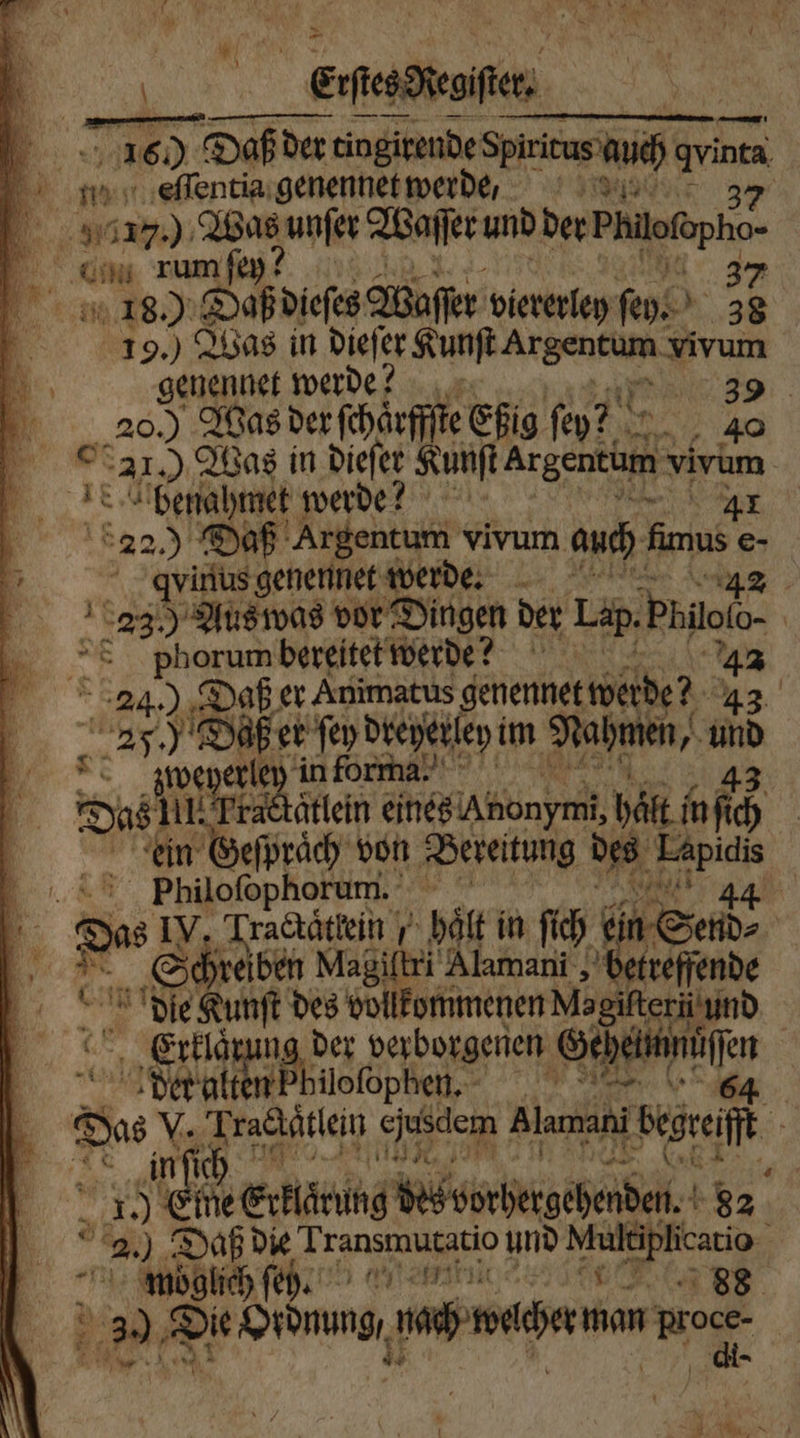 Erſtes Regiſter.
16.) Daß der tingirende Spiritus auch qvinta
eſſentia genennet werde, 37
17.) Was unſer Waſſer und der Philoſopho-
rum ſey? 37
18.) Daß dieſes Waſſer viererley ſey. 38
19.) Was in dieſer Kunſt Argentum vivum
genennet werde? 39
20.) Was der ſchärffſte Eßig ſey? 40
21.) Was in dieſer Kunſt Argentum vivum
benahmet werde? 41
22.) Daß Argentum vivum auch fimus e-
qvinus genennet werde. 42
23.) Aus was vor Dingen der Lap. Philoſo-
phorum bereitet werde? 42
24.) Daß er Animatus genennet werde? 43
25.) Daß er ſey dreyerley im Nahmen, und
zweyerley in forma. 43
Das III. Tractätlein eines Anonymi, hält in ſich
ein Geſpräch von Bereitung des Lapidis
Philoſophorum. 44
Das IV. Tractätlein, hält in ſich ein Send-
Schreiben Magiſtri Alamani, betreffende
die Kunſt des vollkommenen Magiſterii und
Erklärung der verborgenen Geheimnüſſen
der alten Philoſophen. 64
Das V. Tractätlein ejusdem Alamani begreifft
in ſich
1.) Eine Erklärung des vorhergehenden. 82
2.) Daß die Transmutatio und Multiplicatio
möglich ſey. 88
3.) Die Ordnung, nach welcher man proce-
di-